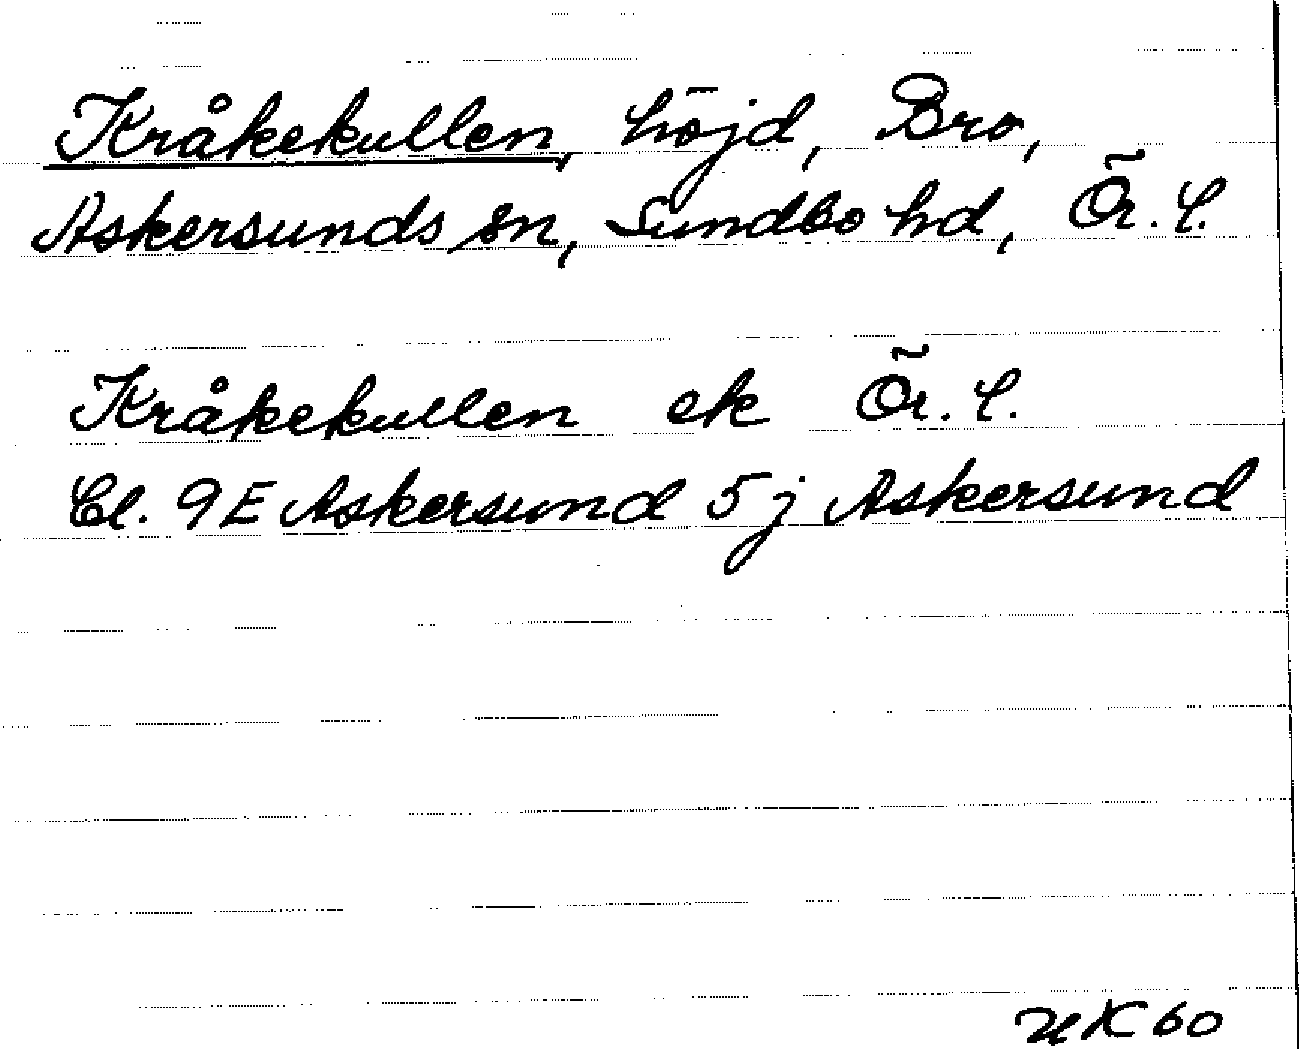 Kråkekullen, höjd, Bro,
Askersunds sn, Sundbo hd, Ör. l.
Kråkekullen ek Ör. l.
Bl. 9E Askersund 5j Askersund
UK 60